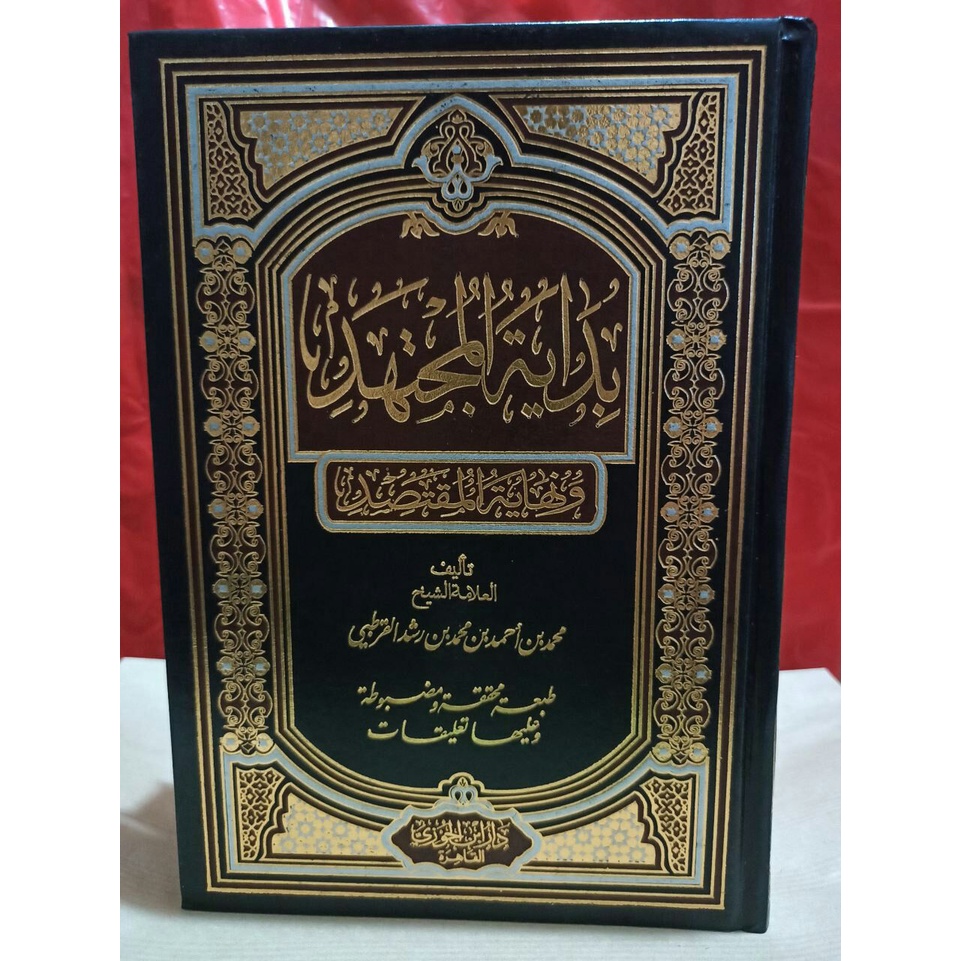 بِدَايَةُ المُجْتَهِدِ
وَنِهَايَةُ المُقْتَصِدِ
تأليف
العلامة الشيخ
محمد بن أحمد بن محمد بن رشد القرطبي
طبعة محققة ومضبوطة
وعليها تعليقات
دار ابن الجوزي
القاهرة